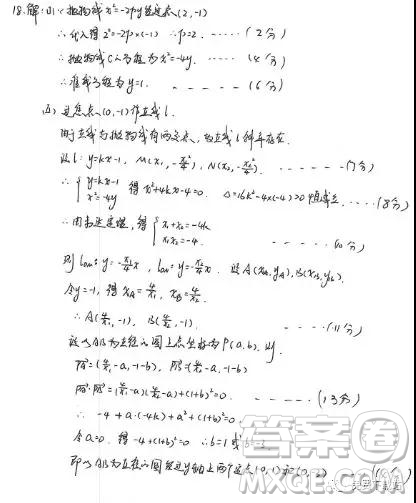 18.解:(1)∵抛物线x²=-2py经过点(2,-1)
∴代入得2²=-2p×(-1) ∴p=2. ……(2分)
∴抛物线C的方程为x²=-4y. ……(4分)
∴准线方程为y=1. ……(6分)
过焦点(0,-1)作直线l.
由于直线与抛物线有两交点,故直线l斜率存在.
设l:y=kx-1, M(x₁,-x₁²/4), N(x₂,-x₂²/4). ……(7分)
∴{y=kx-1
x²=-4y 得x²+4kx-4=0. Δ=16k²-4×(-4)>0恒成立. ……(8分)
∴由韦达定理,得{x₁+x₂=-4k
x₁x₂=-4. ……(10分)
则l_OM:y=-x₁/4 x, l_ON:y=-x₂/4 x. 设A(x_A,y_A),B(x_B,y_B).
令y=-1,得x_A=4/x₁, x_B=4/x₂.
∴A(4/x₁,-1), B(4/x₂,-1). ……(11分)
设以AB为直径的圆上点坐标为P(a,b).则
PA=(4/x₁-a,-1-b), PB=(4/x₂-a,-1-b)
PA·PB=(4/x₁-a)(4/x₂-a)+(1+b)²=0. ……(13分)
∴-4+a·(-4k)+a²+(1+b)²=0.
令a=0.得-4+(1+b)²=0 ∴b=1或
即以AB为直径的圆经过y轴上两个定点(0,1)和(0,
答案圈